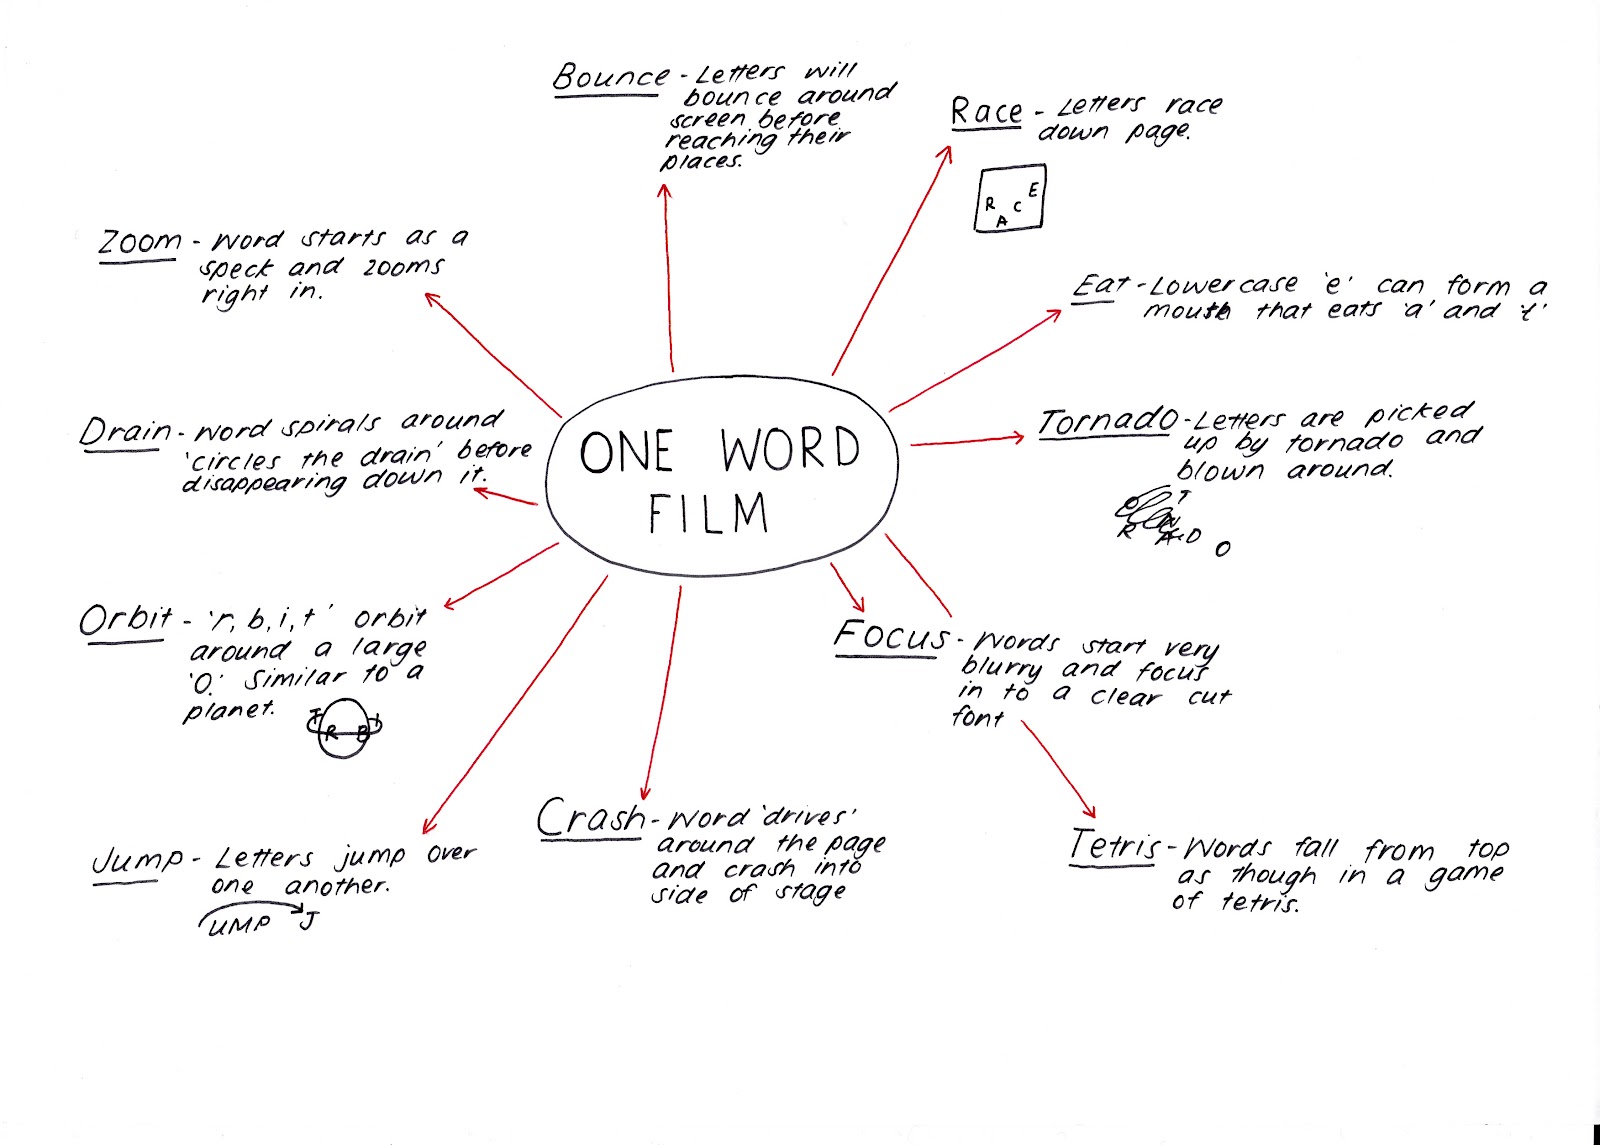 ONE WORD
FILM
Bounce - Letters will
bounce around
screen before
reaching their
places.
Race - Letters race
down page.
R A C E
Eat - Lowercase 'e' can form a
mouth that eats 'a' and 't'
Tornado - Letters are picked
up by tornado and
blown around.
O T
R N A D O
Focus - Words start very
blurry and focus
in to a clear cut
font
Tetris - Words fall from top
as though in a game
of tetris.
Crash - Word 'drives'
around the page
and crash into
side of stage
Jump - Letters jump over
one another.
UMP J
Orbit - 'r, b, i, t' orbit
around a large
'O.' Similar to a
planet.
T R B I
Drain - Word spirals around
'circles the drain' before
disappearing down it.
Zoom - Word starts as a
speck and zooms
right in.